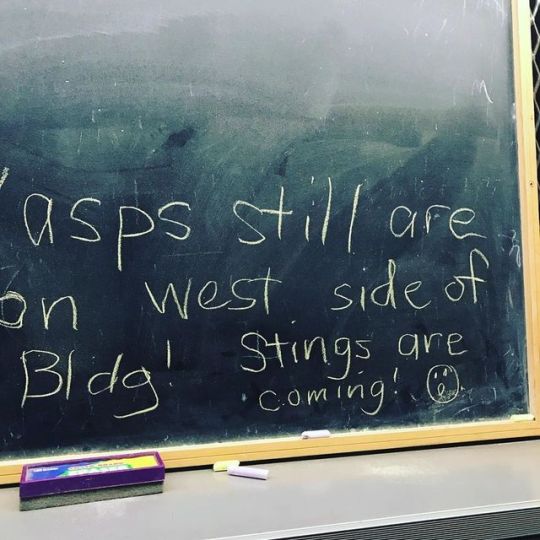 asps still are
on west side of
Bldg! Stings are
coming!